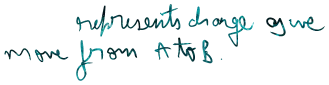 represents change as we
move from A to B.